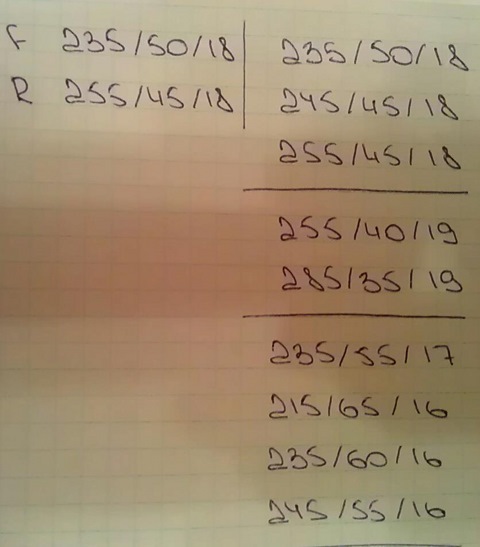 F 235/50/18 235/50/18
R 255/45/18 245/45/18
255/45/18
255/40/19
285/35/19
235/55/17
215/65/16
235/60/16
245/55/16